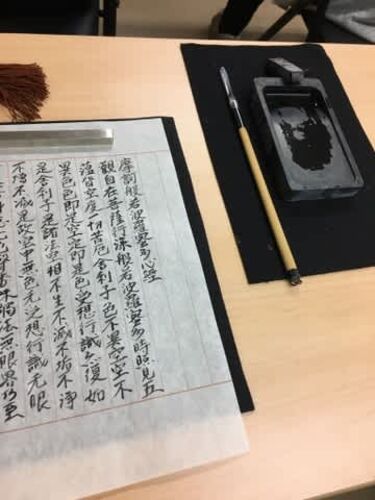 摩訶般若波羅蜜多心經
觀自在菩薩行深般若波羅蜜多時照見五
蘊皆空度一切苦厄舍利子色不異空空不
異色色即是空空即是色受想行識亦復如
是舍利子是諸法空相不生不滅不垢不淨
不增不減是故空中無色无受想行識无眼
聲香味觸法無眼界乃至